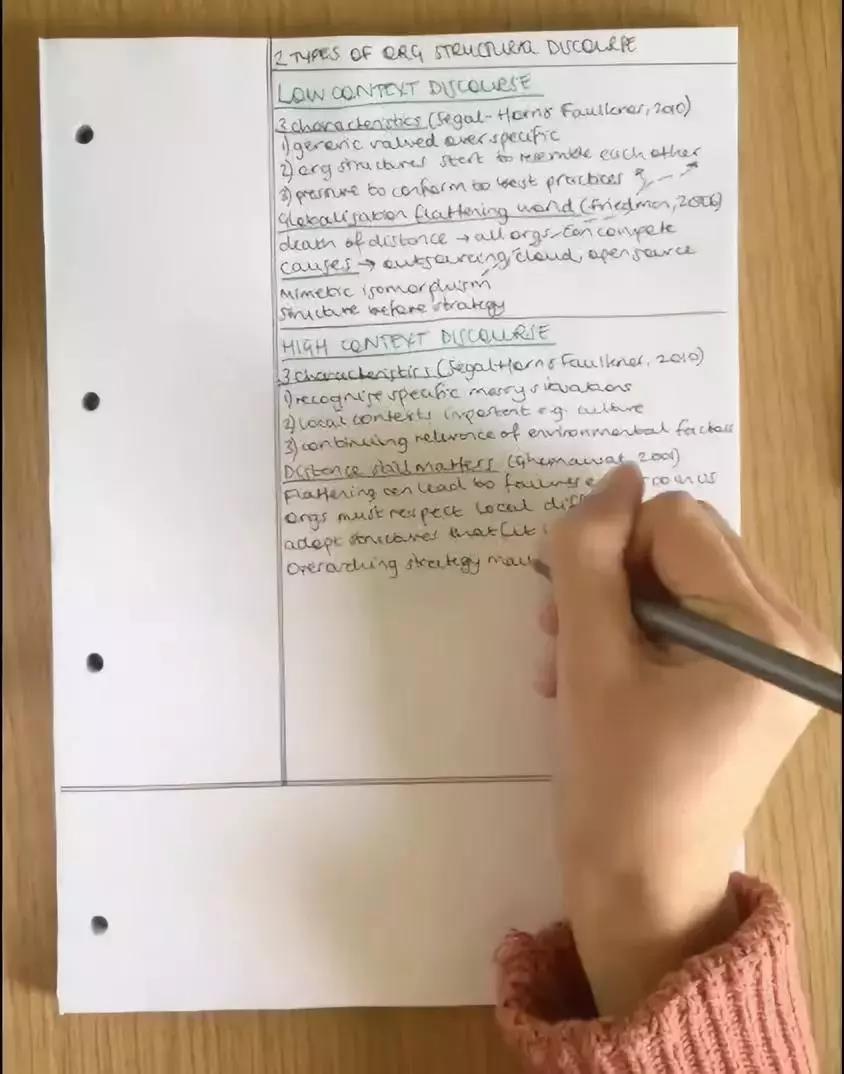 2 TYPES OF ORG STRUCTURAL DISCOURSE
LOW CONTEXT DISCOURSE
3 characteristics (Segal-Horn & Faulkner, 2010)
1) generic valued over specific
2) org structures start to resemble each other
3) pressure to conform to best practices
Globalisation flattening world (Friedman, 2006)
death of distance → all orgs can compete
causes → outsourcing, cloud, open source
Mimetic isomorphism
Structure before strategy
HIGH CONTEXT DISCOURSE
3 characteristics (Segal-Horn & Faulkner, 2010)
1) recognise specific messy situations
2) Local contexts important e.g. culture
3) continuing relevance of environmental factors
Distance still matters (Ghemawat, 2001)
Flattening can lead to failure
orgs must respect local
adopt structures that fit
Overarching strategy